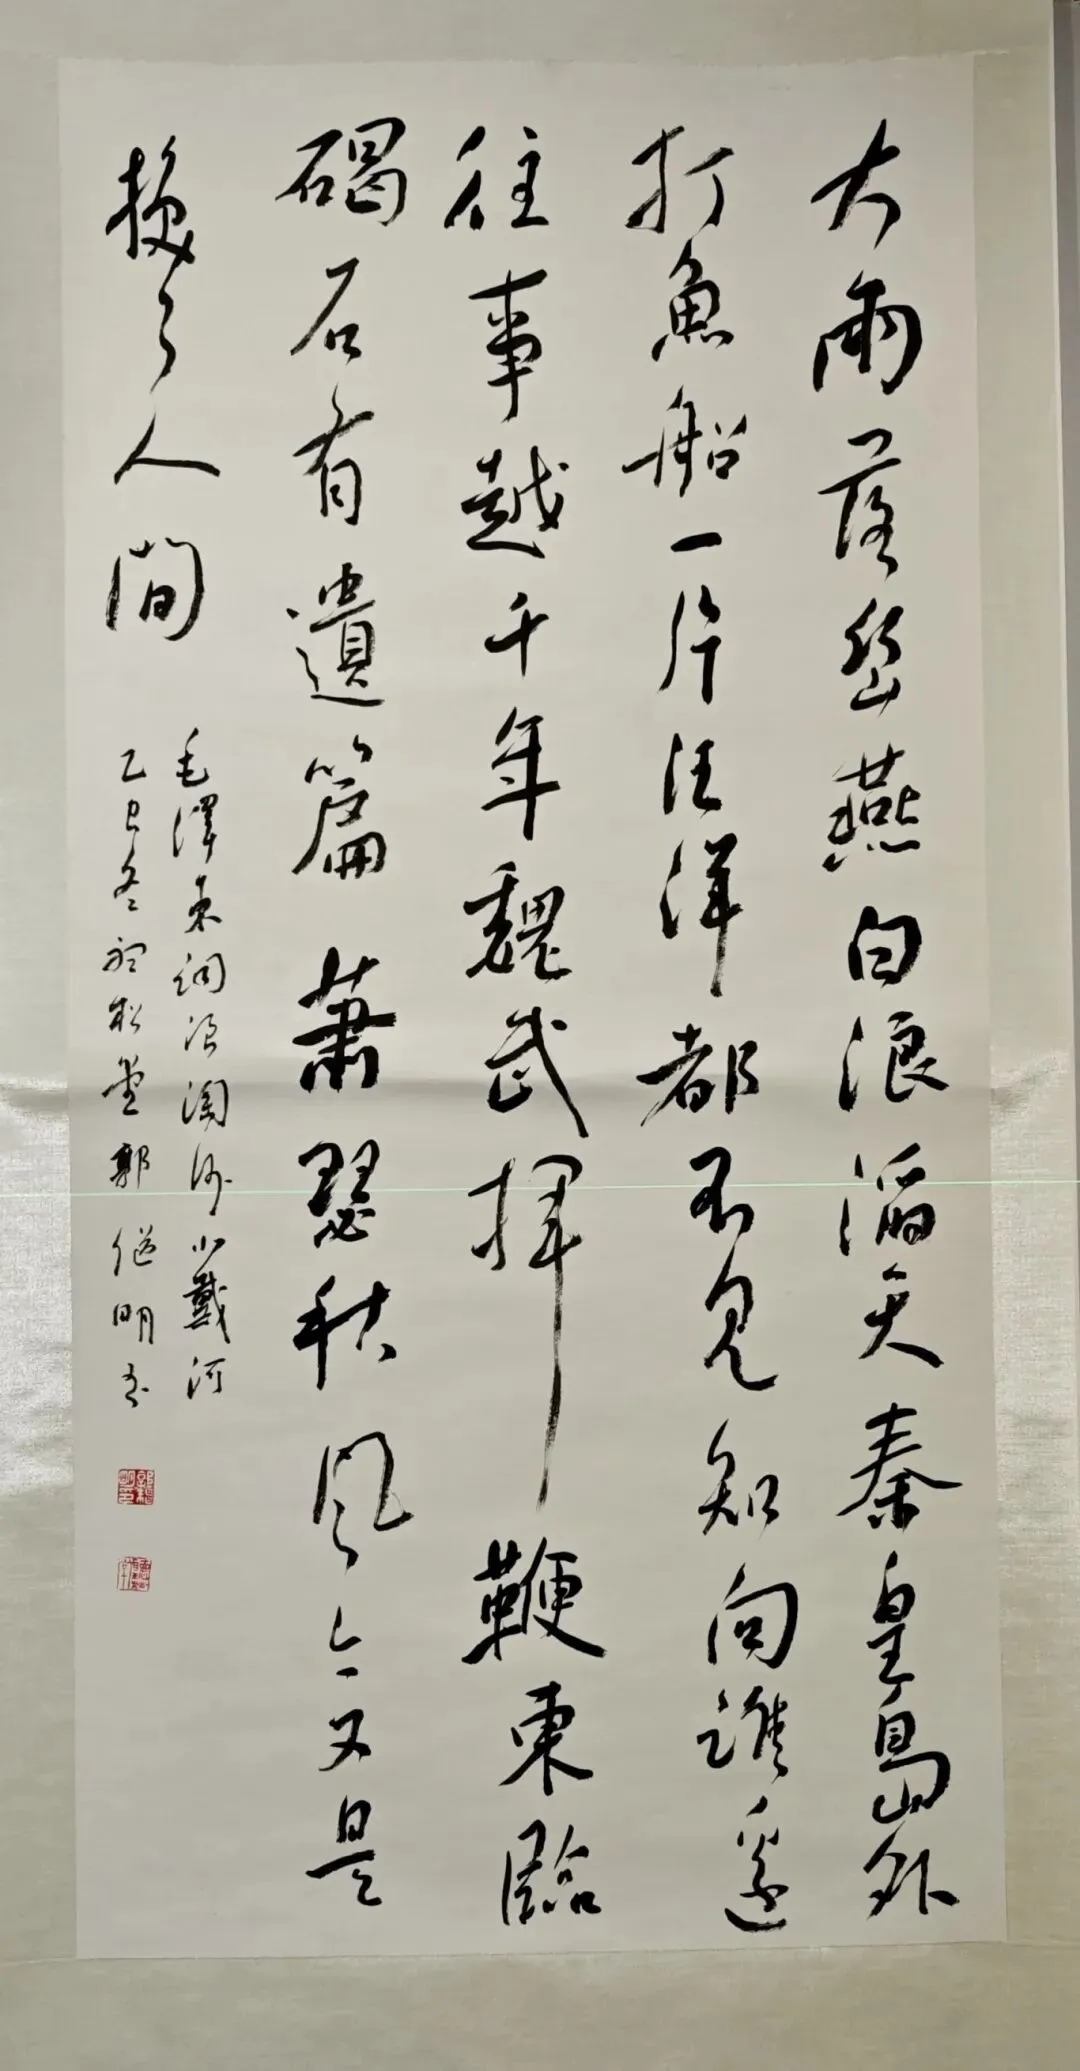 大雨落幽燕白浪滔天秦皇島外
打魚船一片汪洋都不見知向誰邊
往事越千年魏武揮鞭東臨
碣石有遺篇蕭瑟秋風今又是
換了人間
毛澤東詞浪淘沙北戴河
乙巳冬聽松堂郭繼明書